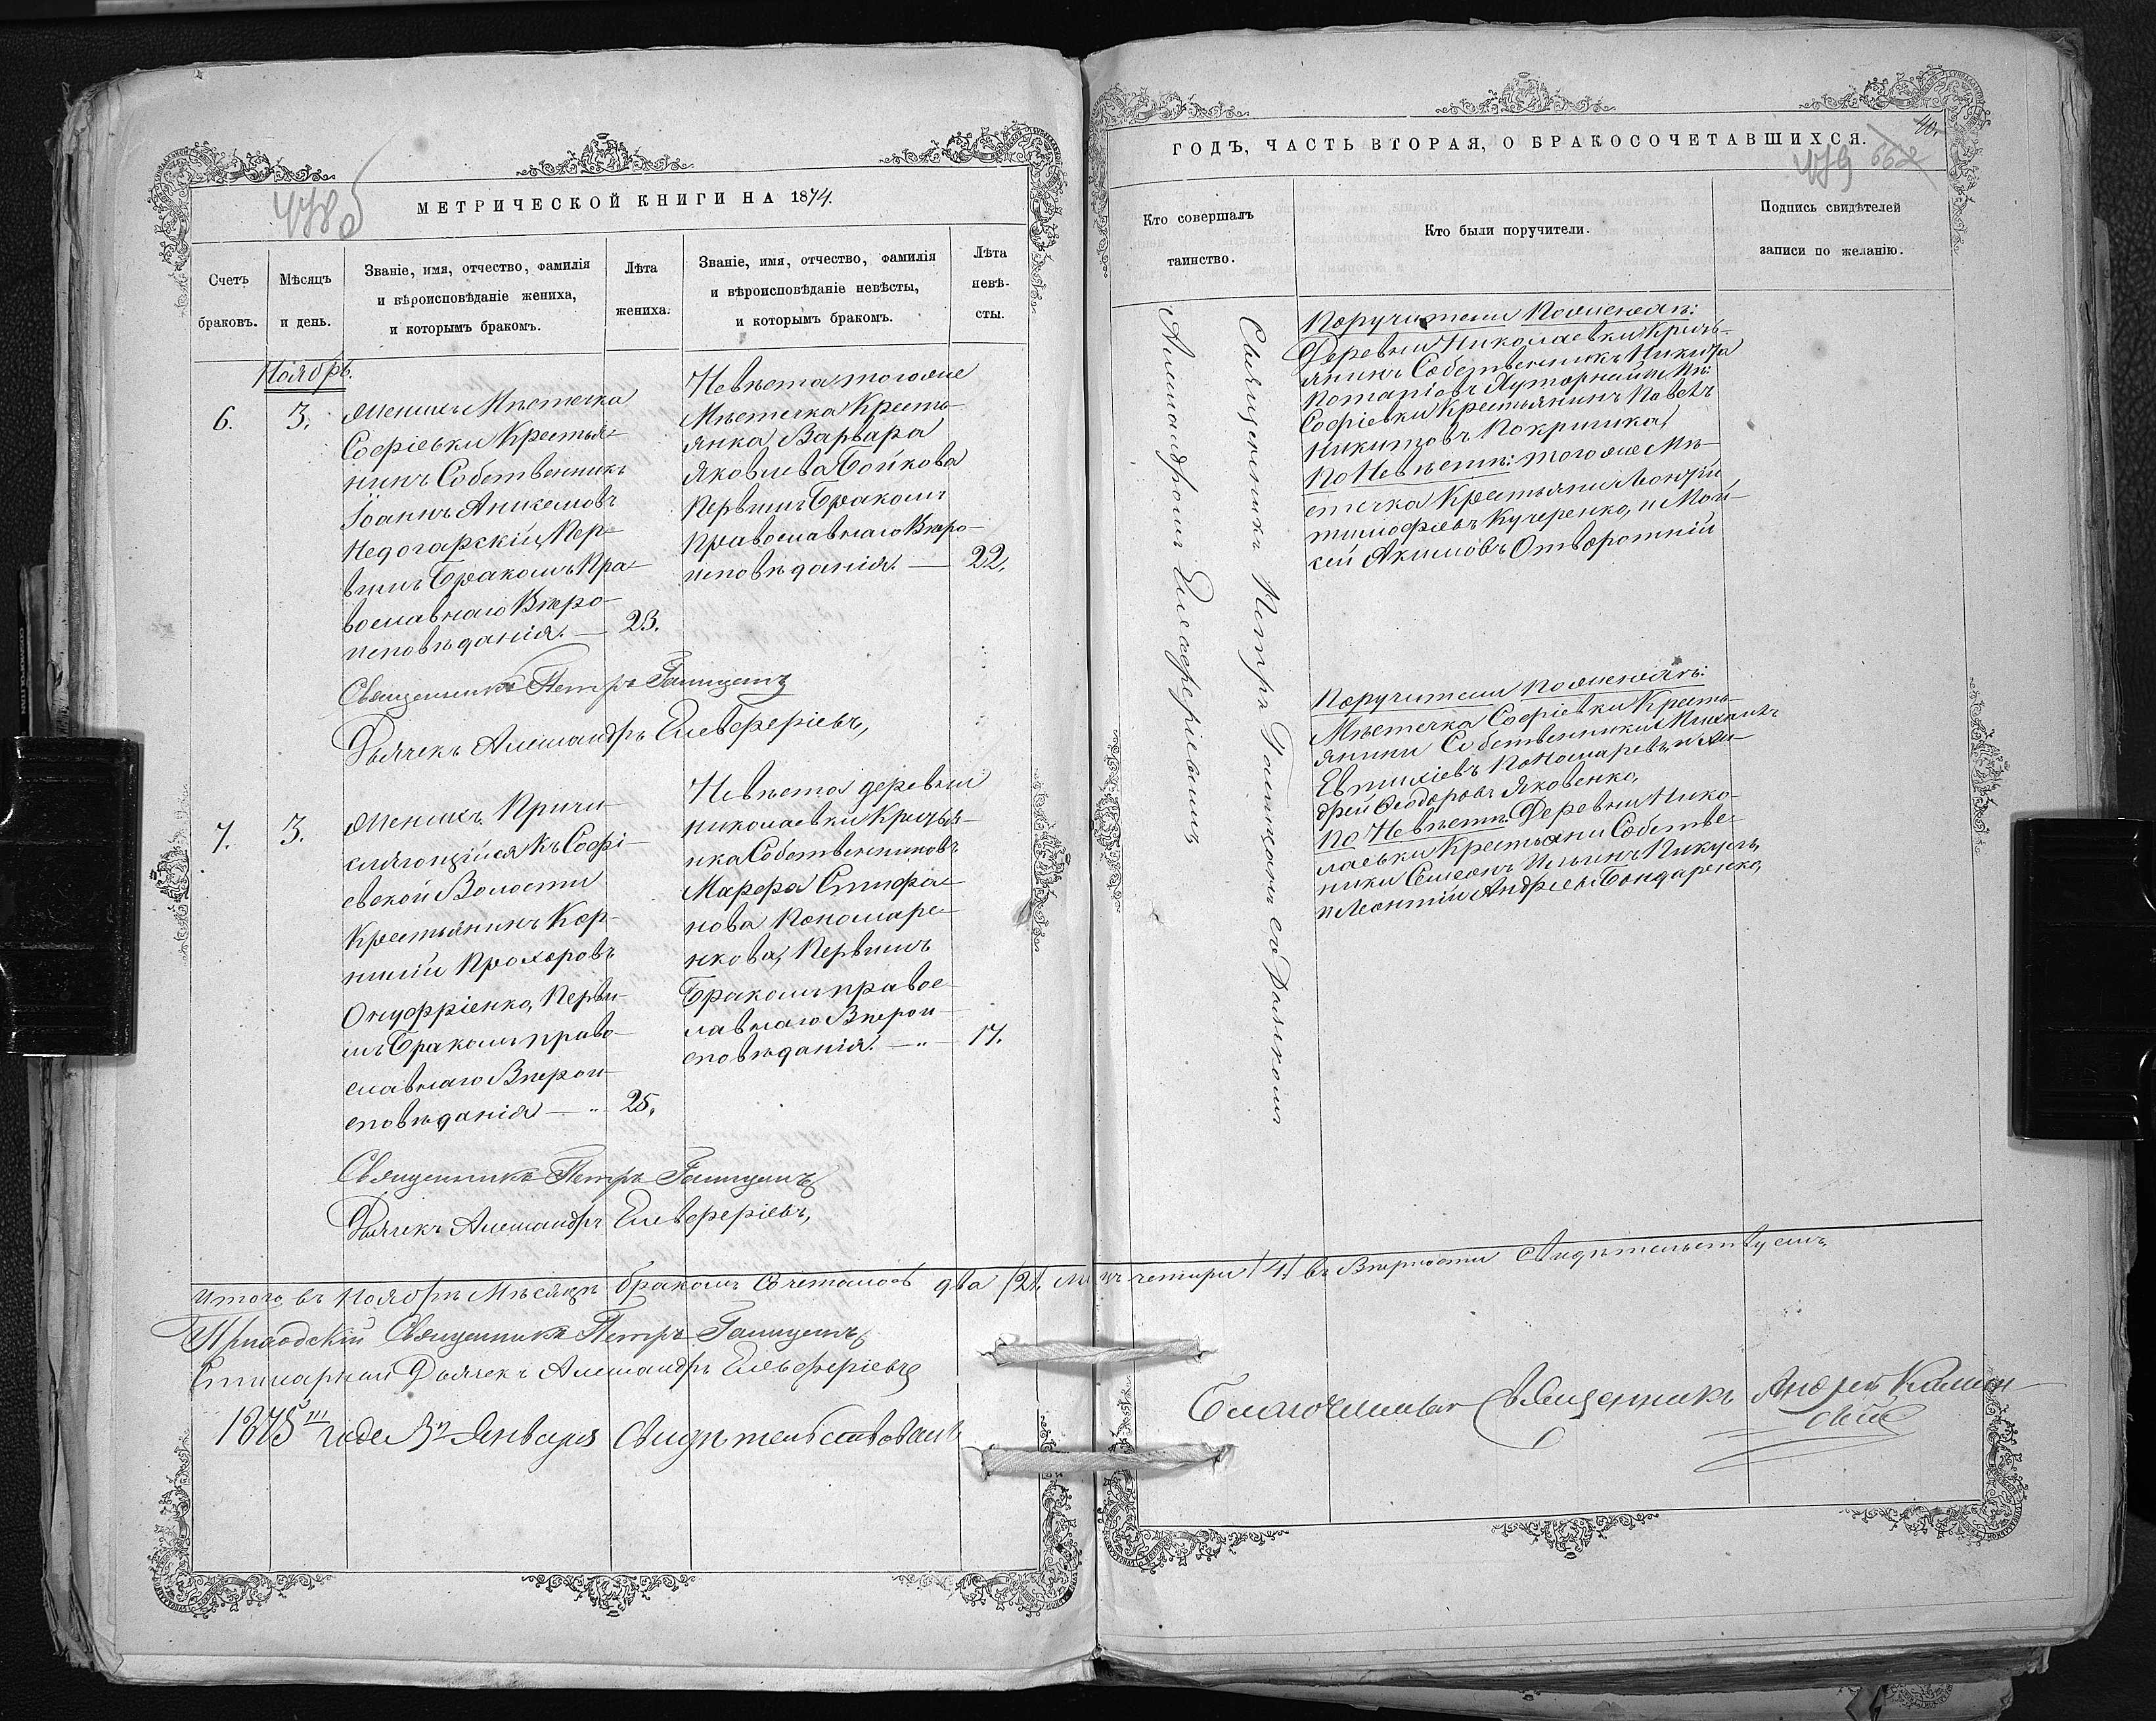 478 об
МЕТРИЧЕСКОЙ КНИГИ НА 1874.
Счетъ
браковъ.
Мѣсяцъ
и день.
Званіе, имя, отчество, фамилія
и вѣроисповѣданіе жениха,
и которымъ бракомъ.
Лѣта
жениха.
Званіе, имя, отчество, фамилія
и вѣроисповѣданіе невѣсты,
и которымъ бракомъ.
Лѣта
невѣ-
сты.
Ноябрь.
6.
3.
Женихъ Мѣстечка
Софіевки Крестья-
нинъ Собственникъ
Іоаннъ Никоновъ
Недогарскій, Пер-
вымъ Бракомъ Пра-
вославнаго Вѣро-
исповѣданія. — 23.
Невѣста тогоже
Мѣстечка Кресть-
янка Варвара
Яковлева Бойкова
Первымъ Бракомъ
Православнаго Вѣро-
исповѣданія. — 22.
Священникъ Петръ
Дьячекъ Александръ Елевферіевъ,
7.
3.
Женихъ Причи-
сляющійся Къ Софі-
евской Волости
Крестьянинъ Кор-
нилій Прохоровъ
Онуфріенко, Первы-
мъ Бракомъ право-
славнаго Вѣрои-
сповѣданія — „ 25,
Невѣста деревни
Николаевки Крестья-
нка Собственниковъ
Марфа Стефа-
нова Пономаре-
нкова, Первымъ
Бракомъ правос-
лавнаго Вѣрои-
сповѣданія. — „ — 17.
Священникъ Петръ
Дьячекъ Александръ Елевферіевъ,
Итого, въ Ноябрѣ Мѣсяцѣ бракомъ Сочеталось два /2/, лицъ четыри /4/ въ Вѣрности свидѣтельствуемъ,
Приходскій Священникъ Петръ
Дьячекъ Александръ Елевферіевъ
1875 года 3 Января Свидѣтельствовалъ
Благочинный Священникъ Андрей
ГОДЪ, ЧАСТЬ ВТОРАЯ, О БРАКОСОЧЕТАВШИХСЯ.
40.
479
662
Кто совершалъ
таинство.
Кто были поручители.
Подпись свидѣтелей
записи по желанію.
Священникъ Петръ съ Дьячкомъ
Александромъ Елевферіевымъ
Поручители По женихѣ:
Деревни Николаевки Кресть-
янинъ Собственникъ Никита
Потаповъ и Мѣ:
Софіевки Крестьянинъ Павелъ
Никитовъ Покришка,
По Невѣстѣ: тогоже Мѣ-
стечка Крестьяни
Тимофѣевъ Кучеренко, и Мой-
сей Акимовъ Отворотній
Поручители по женихѣ:
Мѣстечка Софіевки Кресть-
янини Собственники Михаилъ
Евтихіевъ Пономаревъ, и Ан-
дрей Ѳеодоровъ Яковенко,
По Невѣстѣ: Деревни Нико-
лаевки Крестьяни Собстве-
нники Семеонъ Ильинъ Пикуль,
и Леонтій Андреевъ Бондаренко,